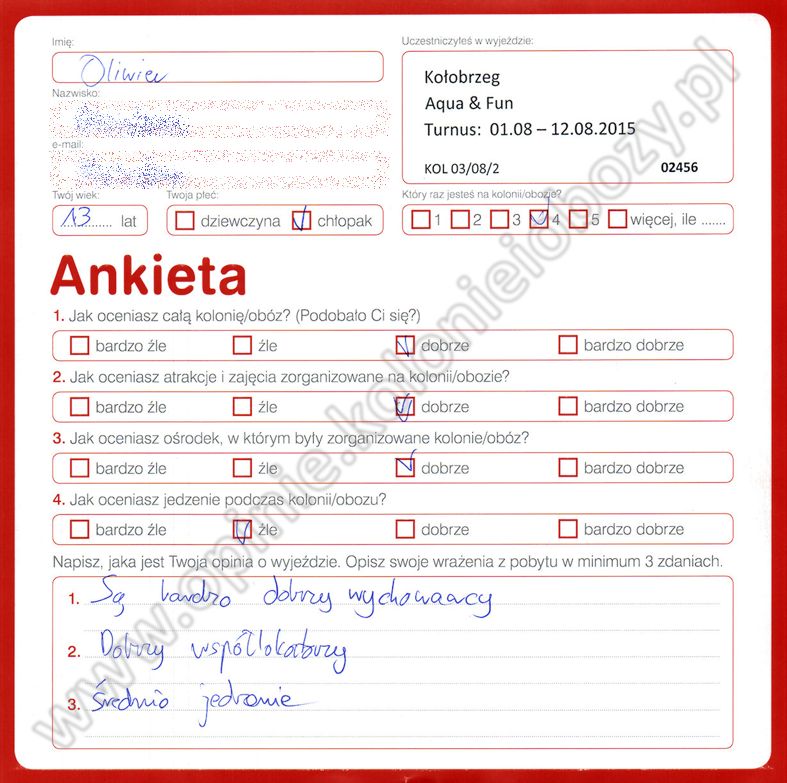 Imię:
Uczestniczyłeś w wyjeździe:
Oliwier
Kołobrzeg
Aqua & Fun
Turnus: 01.08 – 12.08.2015
KOL 03/08/2 02456
Nazwisko:
e-mail:
Twój wiek:
Twoja płeć:
Który raz jesteś na kolonii/obozie?
13 lat
dziewczyna chłopak
1 2 3 4 5 więcej, ile .......
Ankieta
1. Jak oceniasz całą kolonię/obóz? (Podobało Ci się?)
bardzo źle źle dobrze bardzo dobrze
2. Jak oceniasz atrakcje i zajęcia zorganizowane na kolonii/obozie?
bardzo źle źle dobrze bardzo dobrze
3. Jak oceniasz ośrodek, w którym były zorganizowane kolonie/obóz?
bardzo źle źle dobrze bardzo dobrze
4. Jak oceniasz jedzenie podczas kolonii/obozu?
bardzo źle źle dobrze bardzo dobrze
Napisz, jaka jest Twoja opinia o wyjeździe. Opisz swoje wrażenia z pobytu w minimum 3 zdaniach.
1. Są bardzo dobrzy wychowawcy
2. Dobrzy współlokatorzy
3. średnio jedzonie
www.opinie.kolonieiobozy.pl